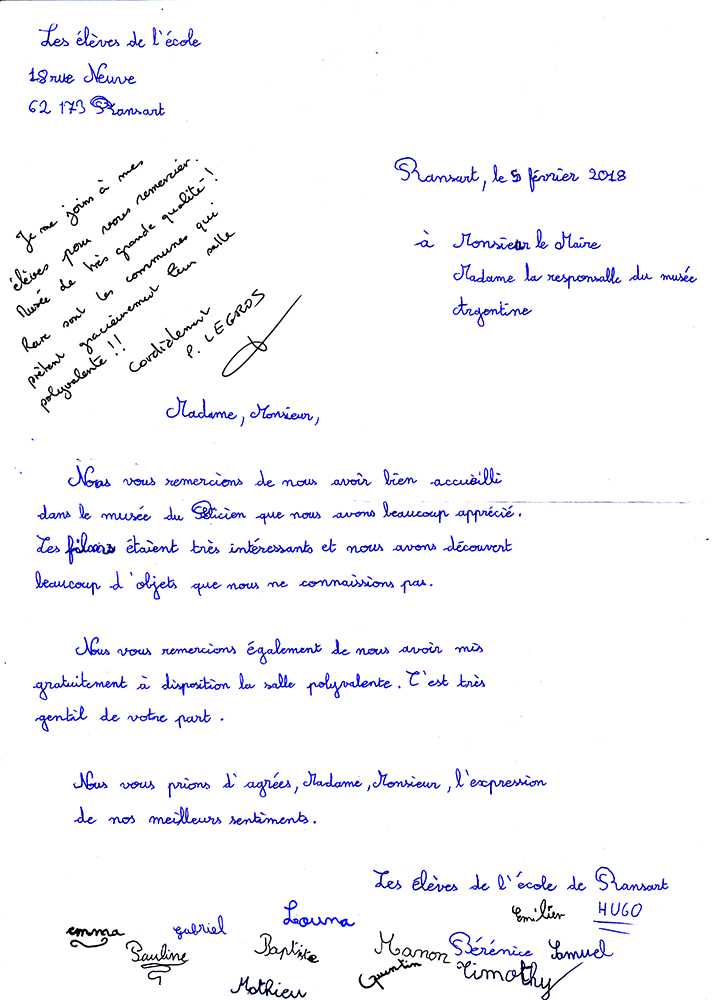 Les élèves de l'école
18 rue Neuve
62 173 Ransart
Je me joins à mes
élèves pour vous remercier.
Musée de très grande qualité !
Rare sont les communes qui
prêtent gracieusement leur salle
polyvalente !!
Cordialement
P. LEGROS
Ransart, le 5 février 2018
à Monsieur le Maire
Madame la responsalle du musée
Argentine
Madame, Monsieur,
Nous vous remercions de nous avoir bien accueilli
dans le musée du que nous avons beaucoup apprécié.
Les films étaient très intéressants et nous avons découvert
beaucoup d'objets que nous ne connaissions pas.
Nous vous remercions également de nous avoir mis
gratuitement à disposition la salle polyvalente. C'est très
gentil de votre part.
Nous vous prions d'agrées, Madame, Monsieur, l'expression
de nos meilleurs sentiments.
Les élèves de l'école de Ransart
emma Gabriel Louna Emilien HUGO
Pauline Baptiste Manon Bérénice Samuel
Mathieu Quentin Timothy